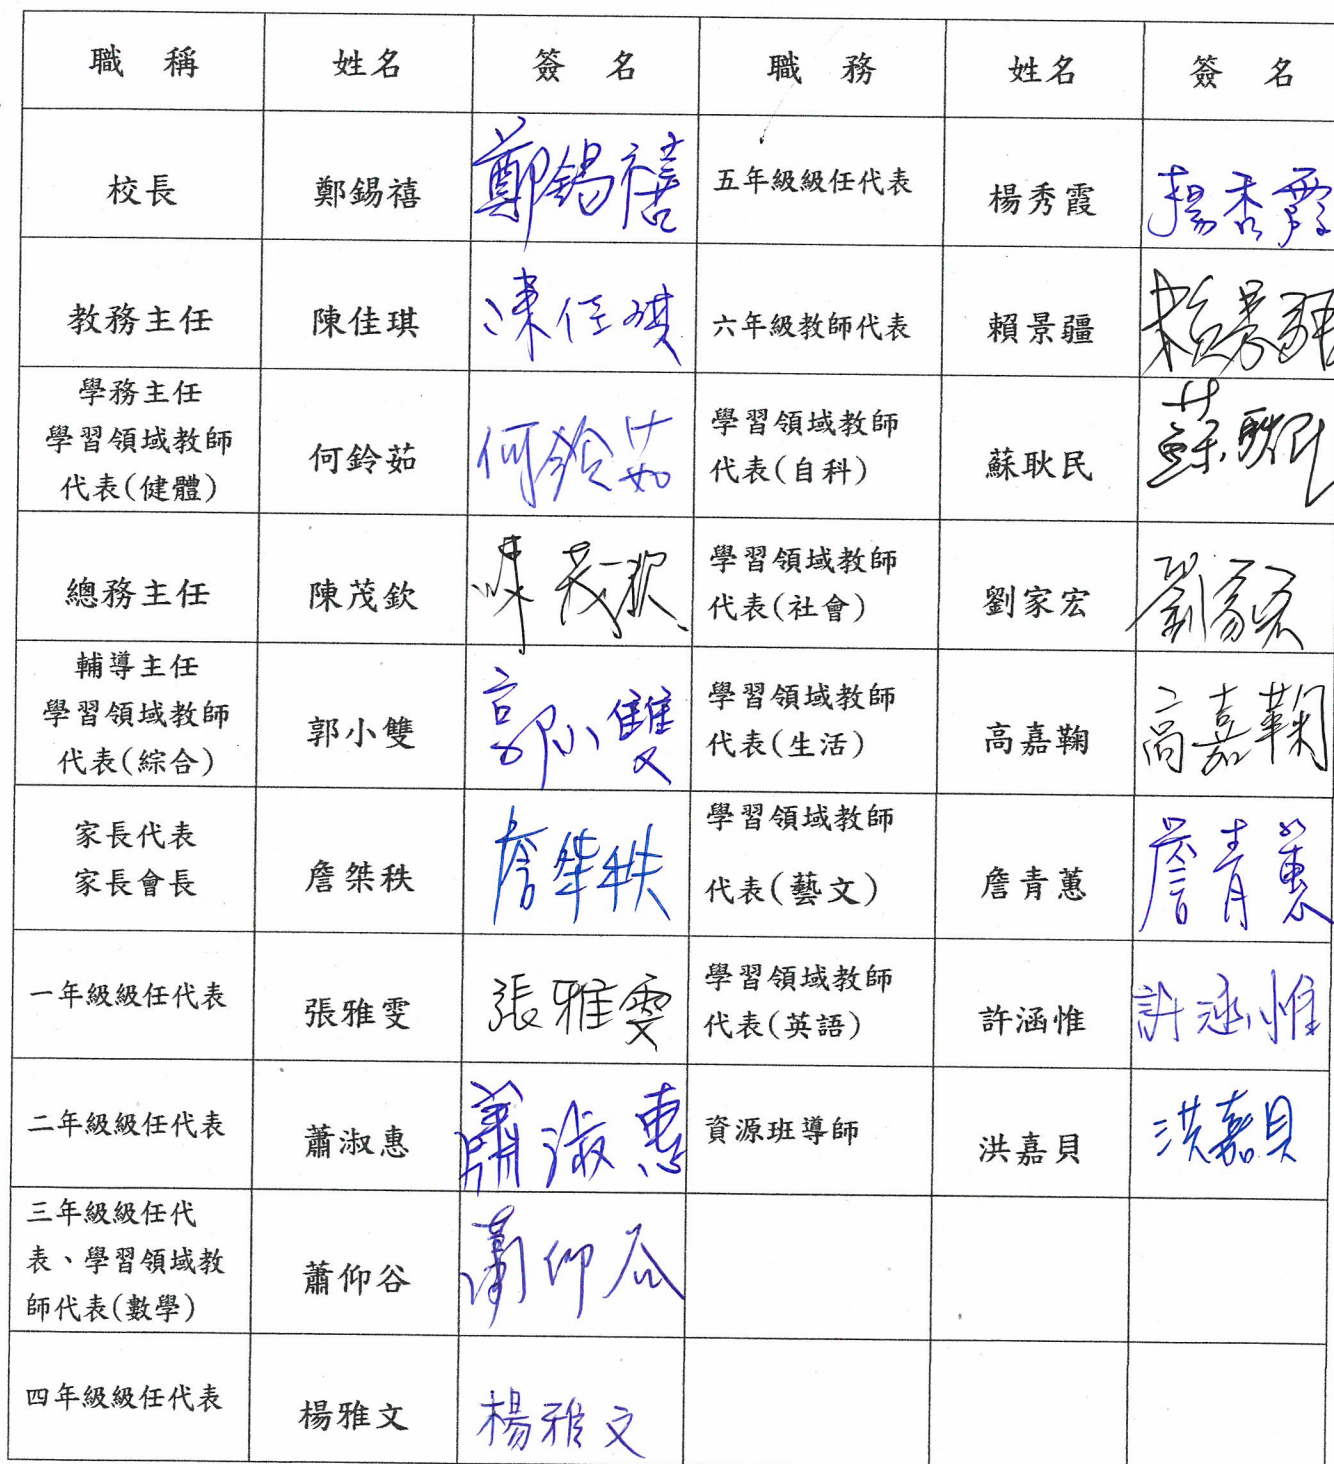 職 稱 姓名 簽 名 職 務 姓名 簽 名
校長 鄭錫禧 鄭錫禧 五年級級任代表 楊秀霞 楊秀霞
教務主任 陳佳琪 陳佳琪 六年級教師代表 賴景疆 賴景疆
學務主任
學習領域教師
代表(健體) 何鈴茹 何鈴茹 學習領域教師
代表(自科) 蘇耿民 蘇耿民
總務主任 陳茂欽 陳茂欽 學習領域教師
代表(社會) 劉家宏 劉家宏
輔導主任
學習領域教師
代表(綜合) 郭小雙 郭小雙 學習領域教師
代表(生活) 高嘉鞠 高嘉鞠
家長代表
家長會長 詹桀秩 詹桀秩 學習領域教師
代表(藝文) 詹青蕙 詹青蕙
一年級級任代表 張雅雯 張雅雯 學習領域教師
代表(英語) 許涵惟 許涵惟
二年級級任代表 蕭淑惠 蕭淑惠 資源班導師 洪嘉貝 洪嘉貝
三年級級任代
表、學習領域教
師代表(數學) 蕭仰谷 蕭仰谷
四年級級任代表 楊雅文 楊雅文